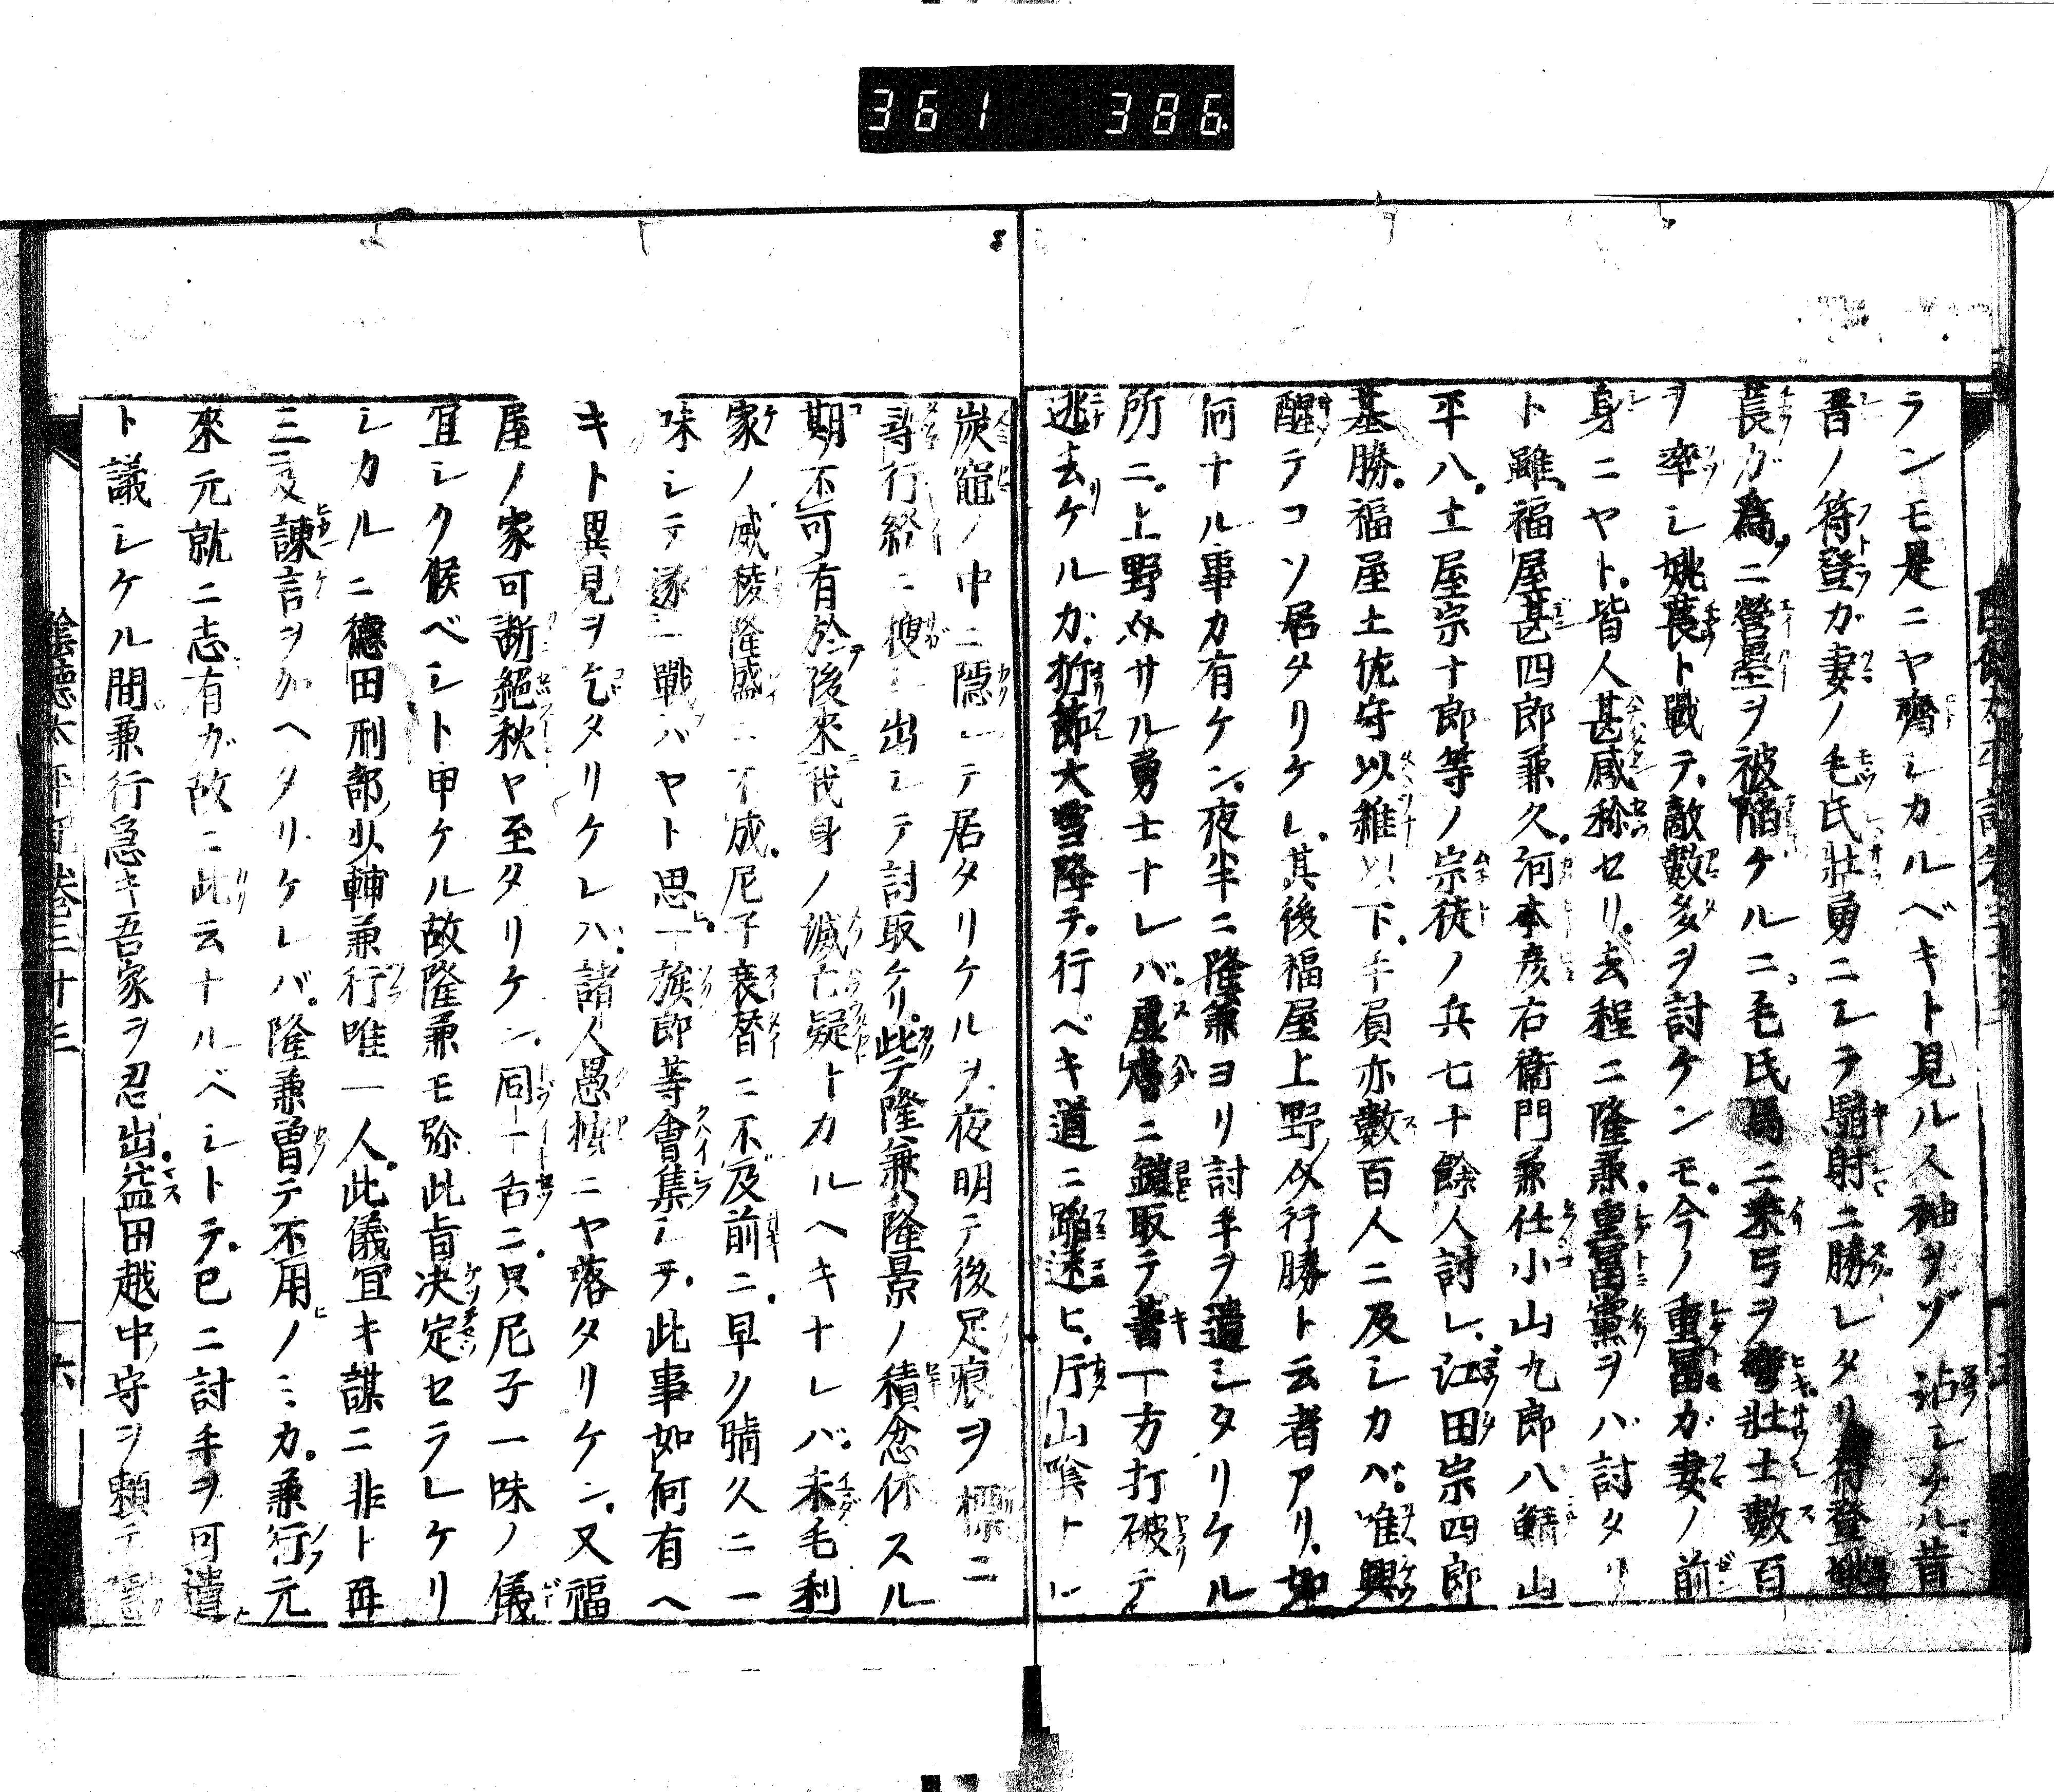 361 386
ランモ是ニヤ齊シカルベキト見ル人袖ヲゾ沾シケル昔
晋ノ符登ガ妻ノ毛氏壯勇ニシテ騎射ニ勝レタリ符登姚
萇ガ為ニ營壘ヲ被陥ケルニ毛氏馬ニ乗弓ヲ彎壮士數百
ヲ卒シ姚萇ト戰テ敵數多ヲ討ケンモ今ノ重冨ガ妻ノ前
身ニヤト皆人甚感称セリ去程ニ隆兼重冨黨ヲバ討タリ
ト雖福屋甚四郎兼久河本彦右衛門兼仕小山九郎八鯖山
平八土屋宗十郎等ノ宗徒ノ兵七十餘人討レ江田宗四郎
基勝福屋土佐守以雒以下手負亦數百人ニ及シカバ唯興
醒テコソ居タリケレ其後福屋上野𠆢行勝ト云者アリ如
何ナル事カ有ケン夜半ニ隆兼ヨリ討手ヲ遣シタリケル
所ニ上野𠆢サル勇士ナレバ鎧取テ著一方打破テ
逃去ケルガ折節大雪降テ行ベキ道ニ蹈迷ヒ片山陰ト
炭竈ノ中ニ隠レテ居タリケルヲ夜明テ後足痕ヲ標ニ
尋行終ニ搜シ出シテ討取ケリ此テ隆兼隆景ノ積忿休スル
期不可有於後來我身ノ滅亡疑トカルヘキナレバ未毛利
家ノ威稜隆盛ニ不成尼子衰替ニ不及前ニ早ク晴久ニ一
味シテ遂一戰バヤト思一族郎等會集シテ此事如何有ヘ
キト異見ヲ乞タリケレバ諸人愚按ニヤ落タリケン又福
屋ノ家可断絕秋ヤ至タリケン同一舌ニ只尼子一味ノ儀
宜シク候ベシト申ケル故隆兼モ弥此旨决定セラレケリ
シカルニ德田刑部少輔兼行唯一人此儀宜キ謀ニ非ト再
三及諫言ヲカヘタリケレバ隆兼曽テ不用ノミカ兼行元
來元就ニ志有ガ故ニ此云ナルベシトテ已ニ討手ヲ可遣
ト議シケル間兼行急キ吾家ヲ忍出益田越中守ヲ頼テ
陰德太平記卷三十三 六